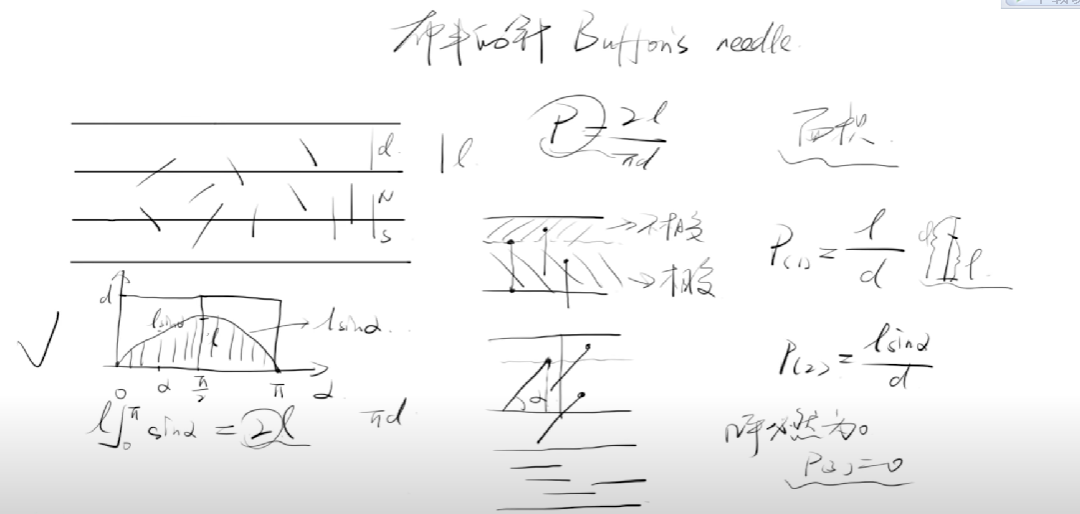 布丰的针 Buffon's needle.
d.
l.
P = 2l/πd
面积
N
S
→不相交
→相交
P(1) = l/d
d l.
d
lsinα
l
→ lsinα.
0 α π/2 π α
l∫₀^π sinα = 2l
πd
α
P(2) = lsinα/d
必然为0
P(3) = 0